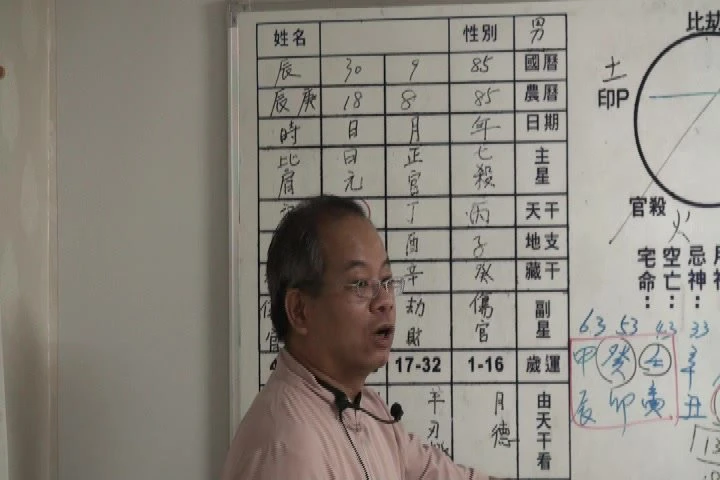 姓名 性別 男
辰 30 9 85 國曆
辰庚 18 8 85 農曆
時 日 月 年 日期
比肩 日元 正官 七殺 主星
丁 丙 天干
酉 子 地支
辛 癸 藏干
劫財 傷官 副星
17-32 1-16 歲運
羊刃 月德 由天干看
比劫
土
印P
官殺
火
宅命:
空亡:
忌神:
63 53 43 33
甲 癸 壬 辛
辰 卯 寅 丑